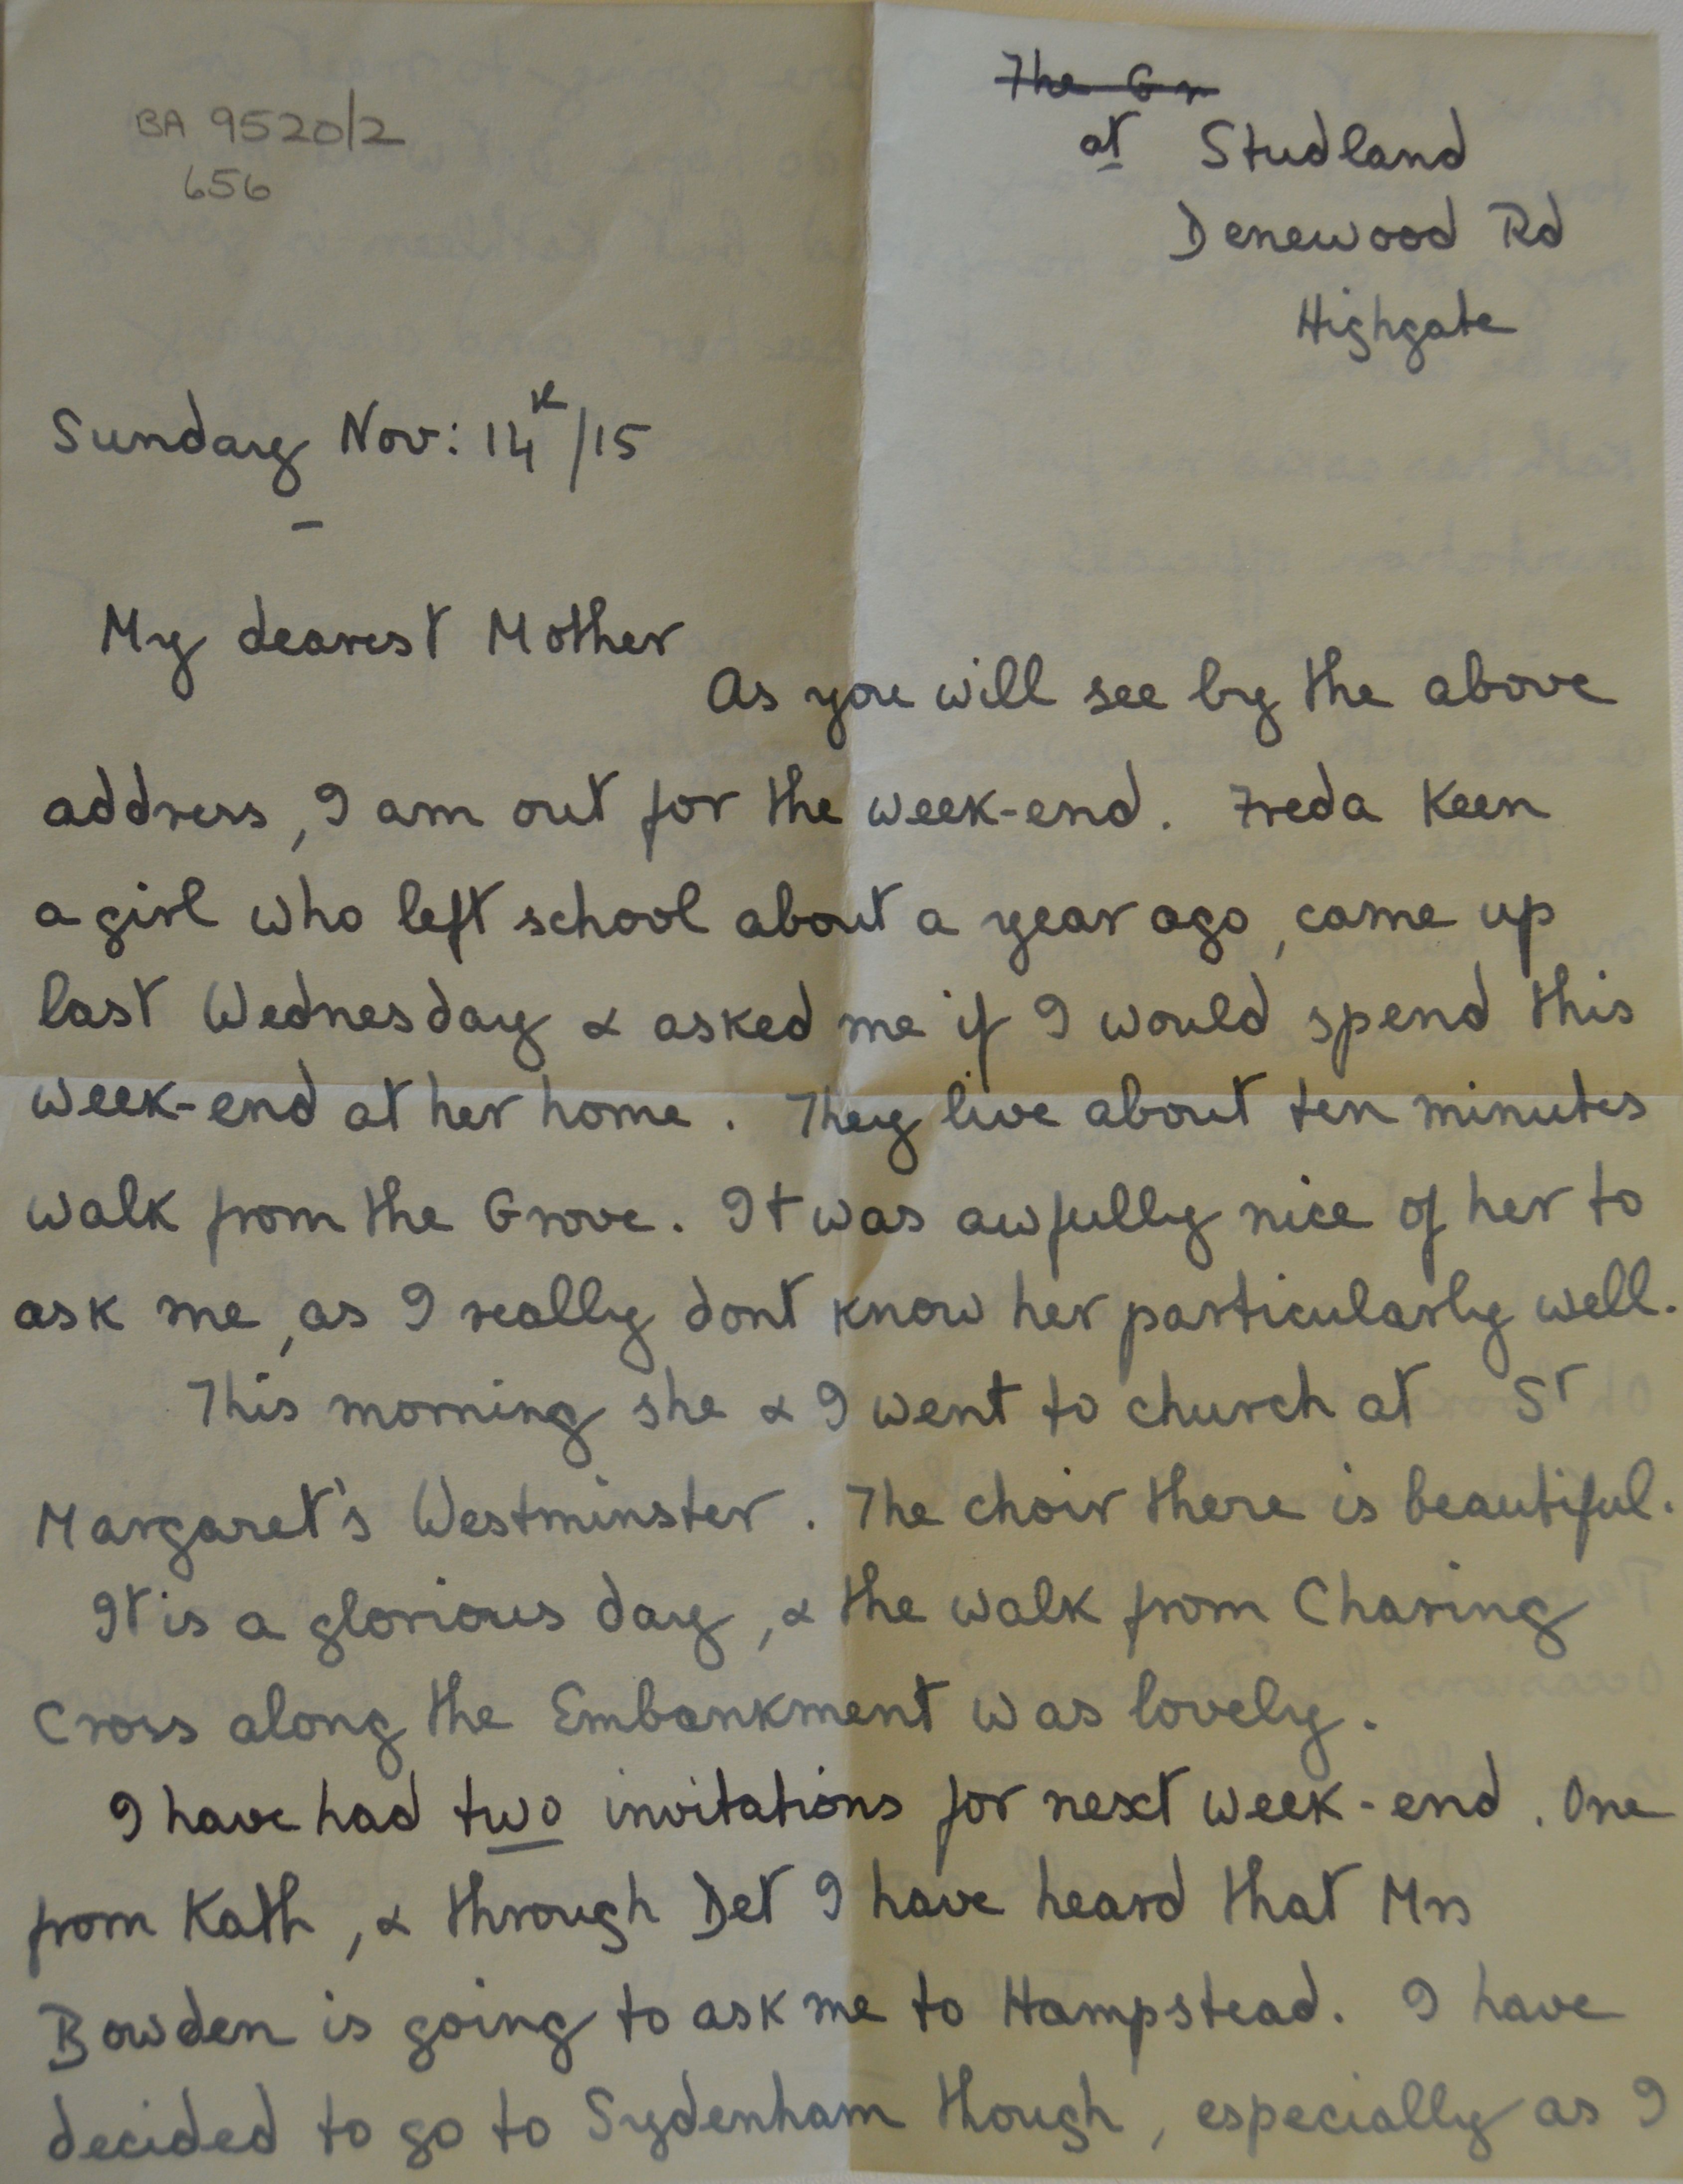 BA 9520/2
656
The Gr
at Studland
Denewood Rd
Highgate
Sunday Nov: 14th/15
My dearest Mother
As you will see by the above
address, I am out for the week-end. Freda Keen
a girl who left school about a year ago, came up
last Wednesday & asked me if I would spend this
week-end at her home. They live about ten minutes
walk from the Grove. It was awfully nice of her to
ask me, as I really dont know her particularly well.
This morning she & I went to church at St
Margaret's Westminster. The choir there is beautiful.
It is a glorious day, & the walk from Charing
Cross along the Embankment was lovely.
I have had two invitations for next week-end. One
from Kath, & through Det I have heard that Mrs
Bowden is going to ask me to Hampstead. I have
decided to go to Sydenham though, especially as I